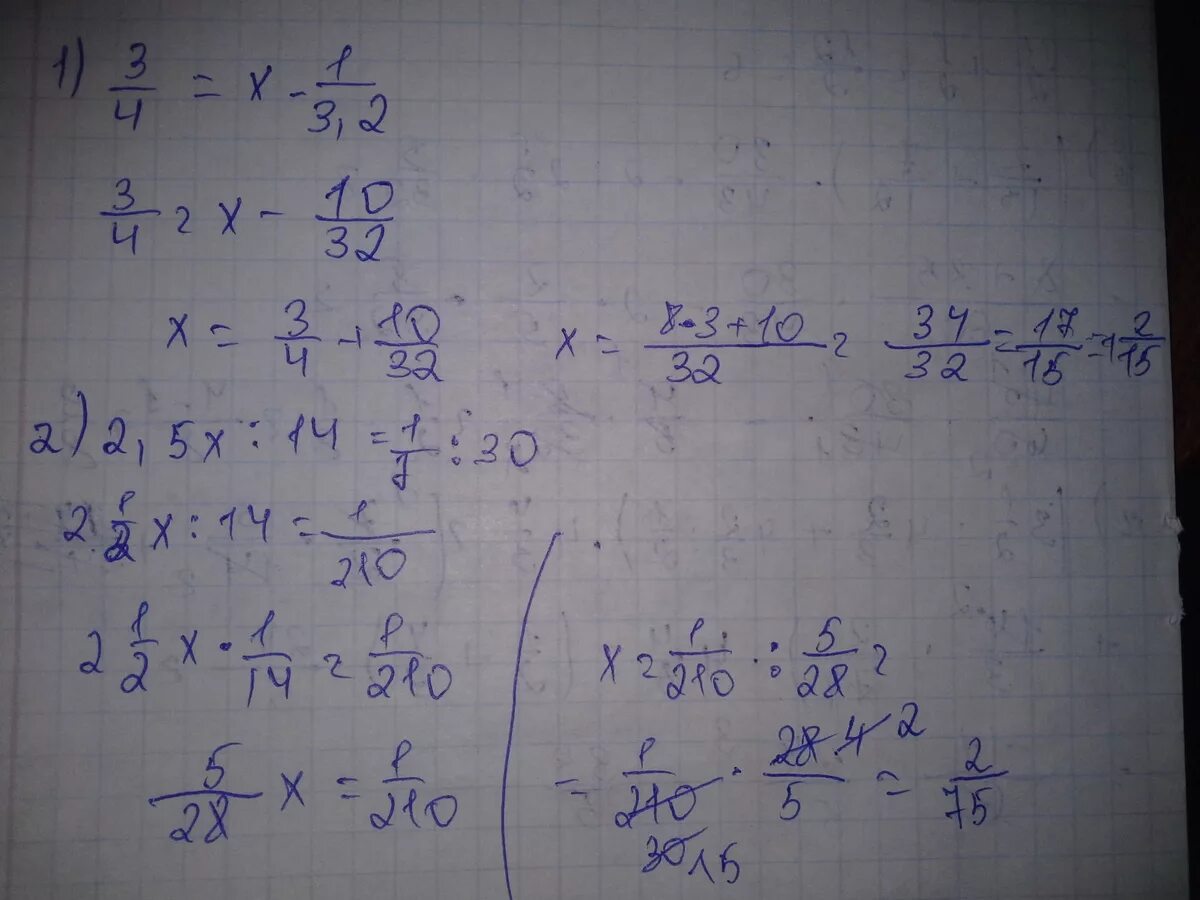 1) 3/4 = x - 1/3,2
3/4 = x - 10/32
x = 3/4 + 10/32
x = (8·3+10)/32 = 34/32 = 17/15 = 1 2/15
2) 2,5x : 14 = 1/7 : 30
2 1/2 x : 14 = 1/210
2 1/2 x · 1/14 = 1/210
5/28 x = 1/210
x = 1/210 : 5/28 =
= 1/210 30 15 · 28 4 2/5 = 2/75